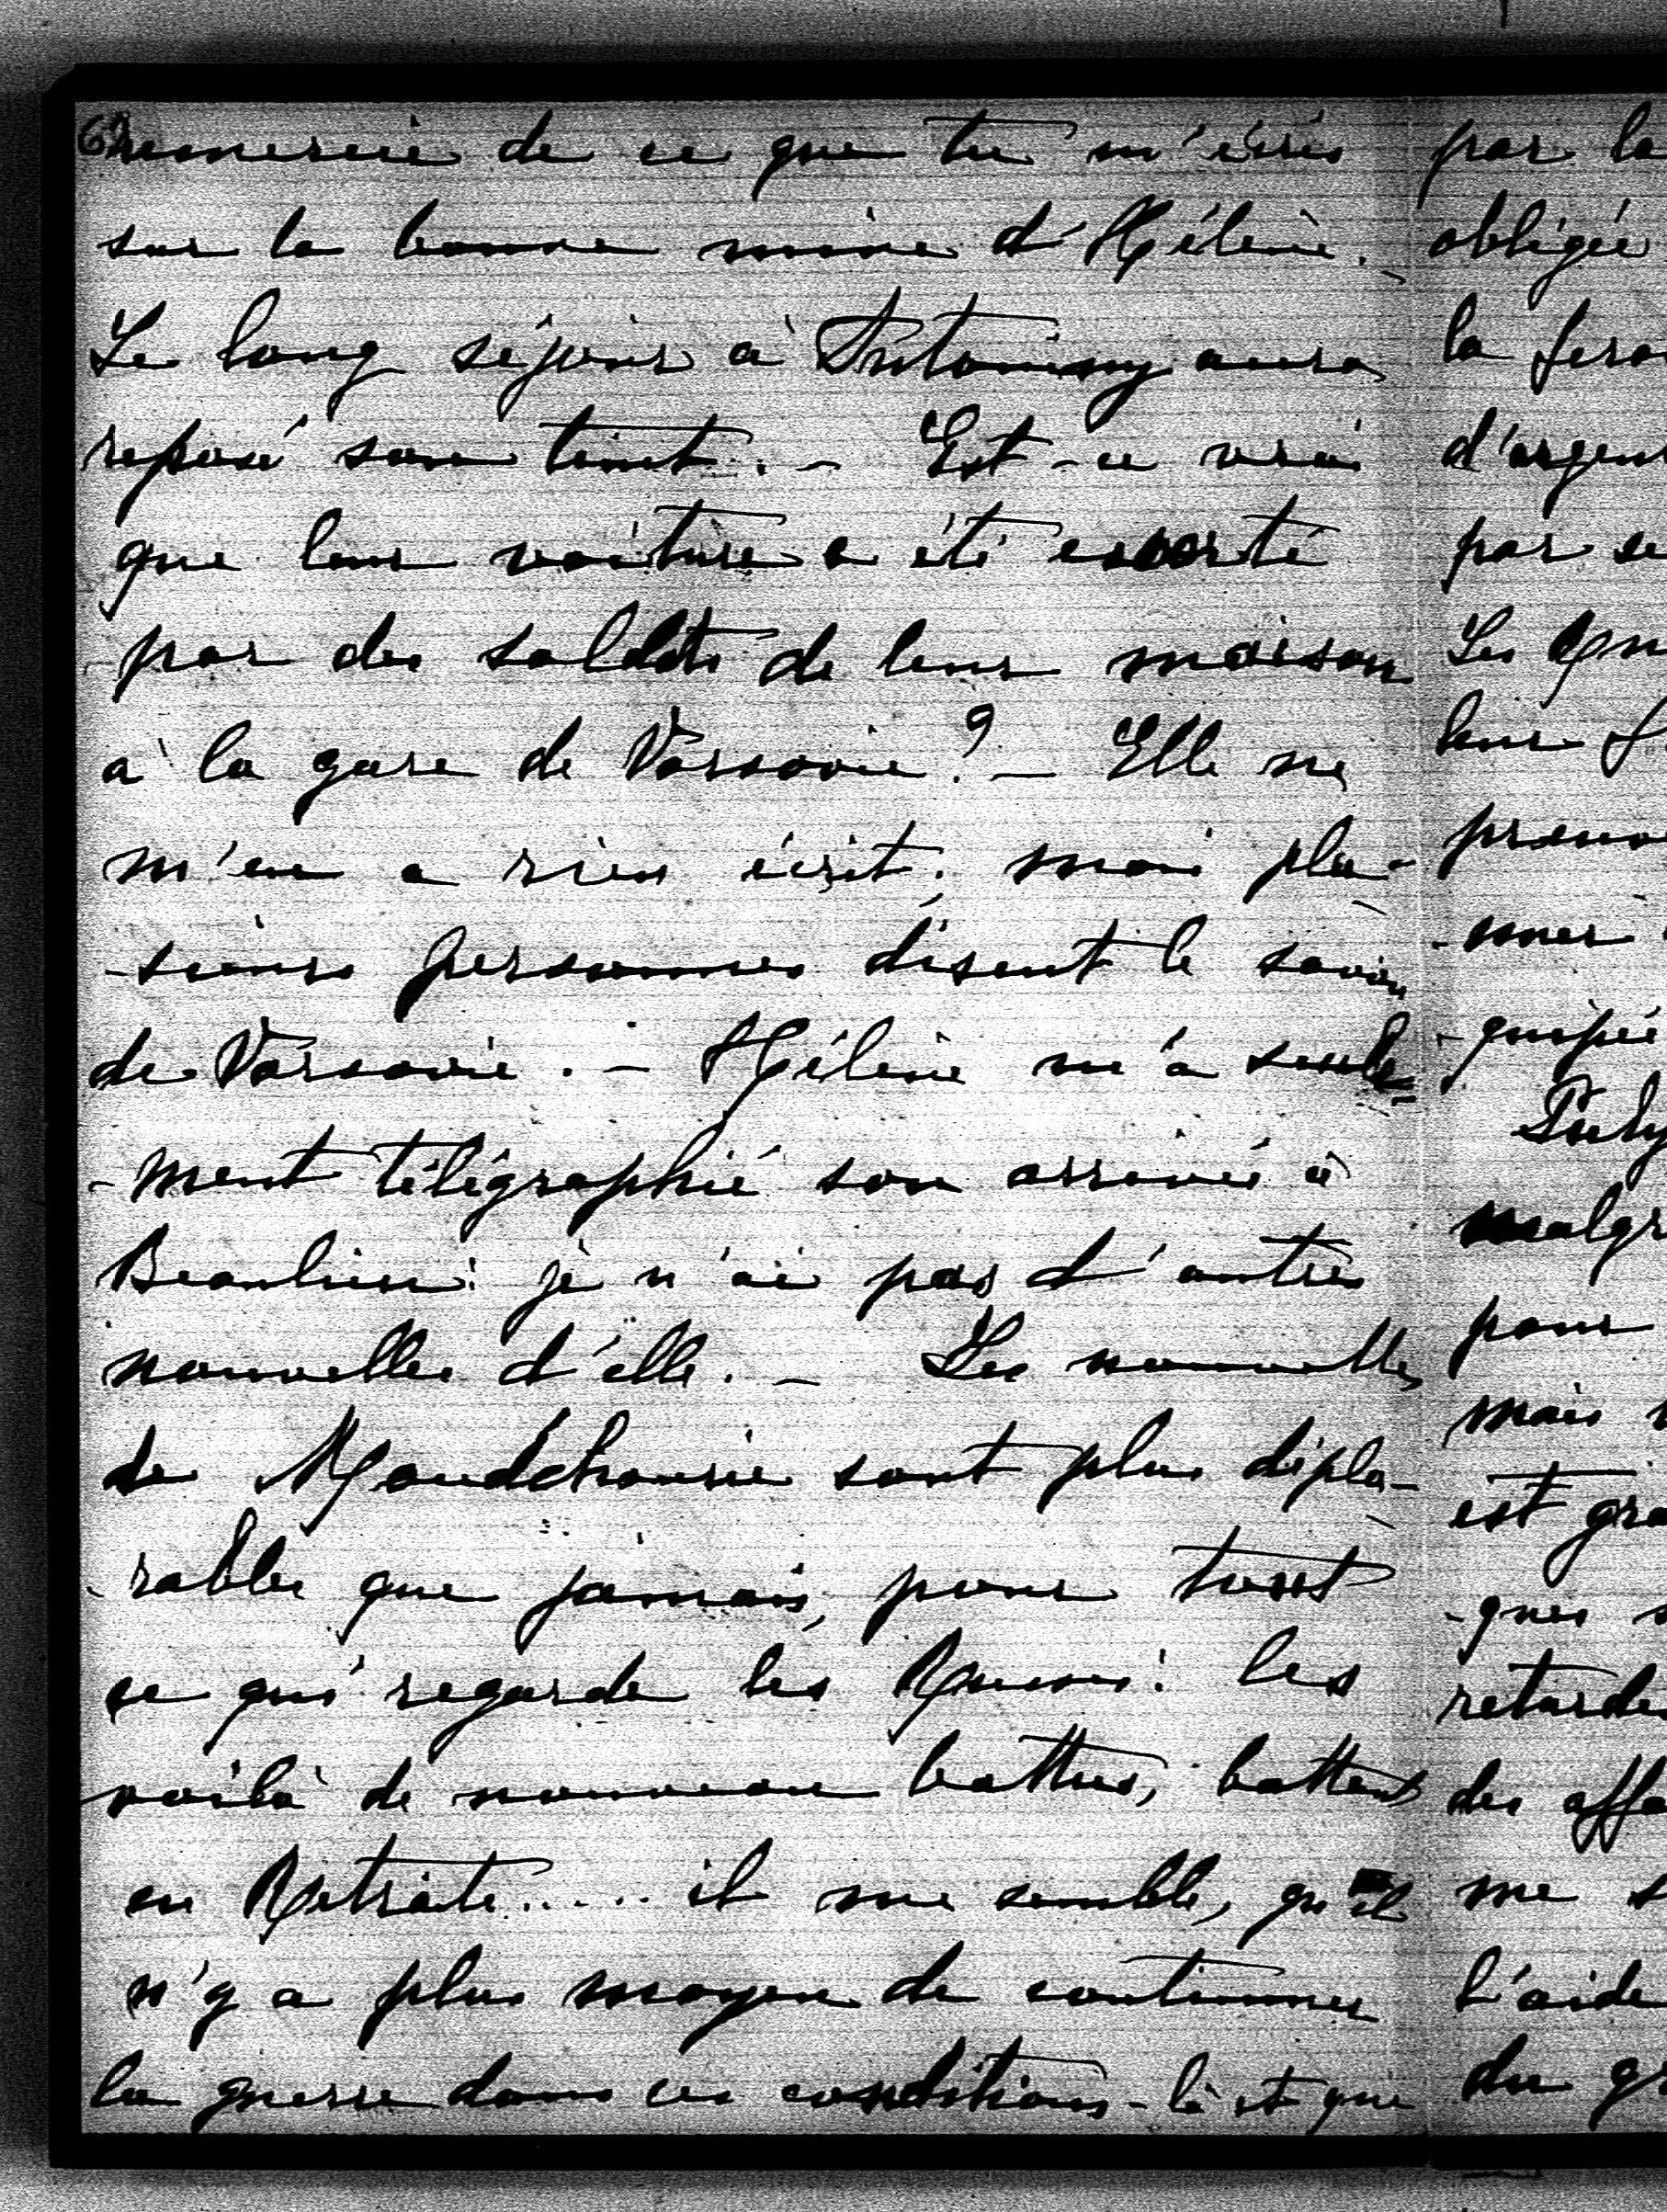 62
remercie de ce que tu m'écris
sur la bonne mine d'Hélène. –
Le long séjour à Antoniny aura
reposé son teint. – Est-ce vrai
que leur voiture a été escorté
par des soldats de leur maison
à la gare de Varsovie? – Elle ne
m'en a rien écrit; mais plu-
-sieurs personnes disent le savoir
de Varsovie. – Hélène m'a seule-
-ment télégraphié son arrivée à
Beaulieu: je n'ai pas d'autres
nouvelles d'elle. – Les nouvelles
de Mandchourie sont plus déplo-
-rables que jamais, pour tout
ce qui regarde les Russes: les
voilà de nouveau battus, battent
en Retraite..... il me semble, qu'il
n'y a plus moyen de continuer
la guerre dans ces conditions-là et que
par la
obligée
la
d'argent
par
Les
leur
-mer
malgr
pour
mais
est gra
-ques
retarde
des affa
me s
L'aide
du gr